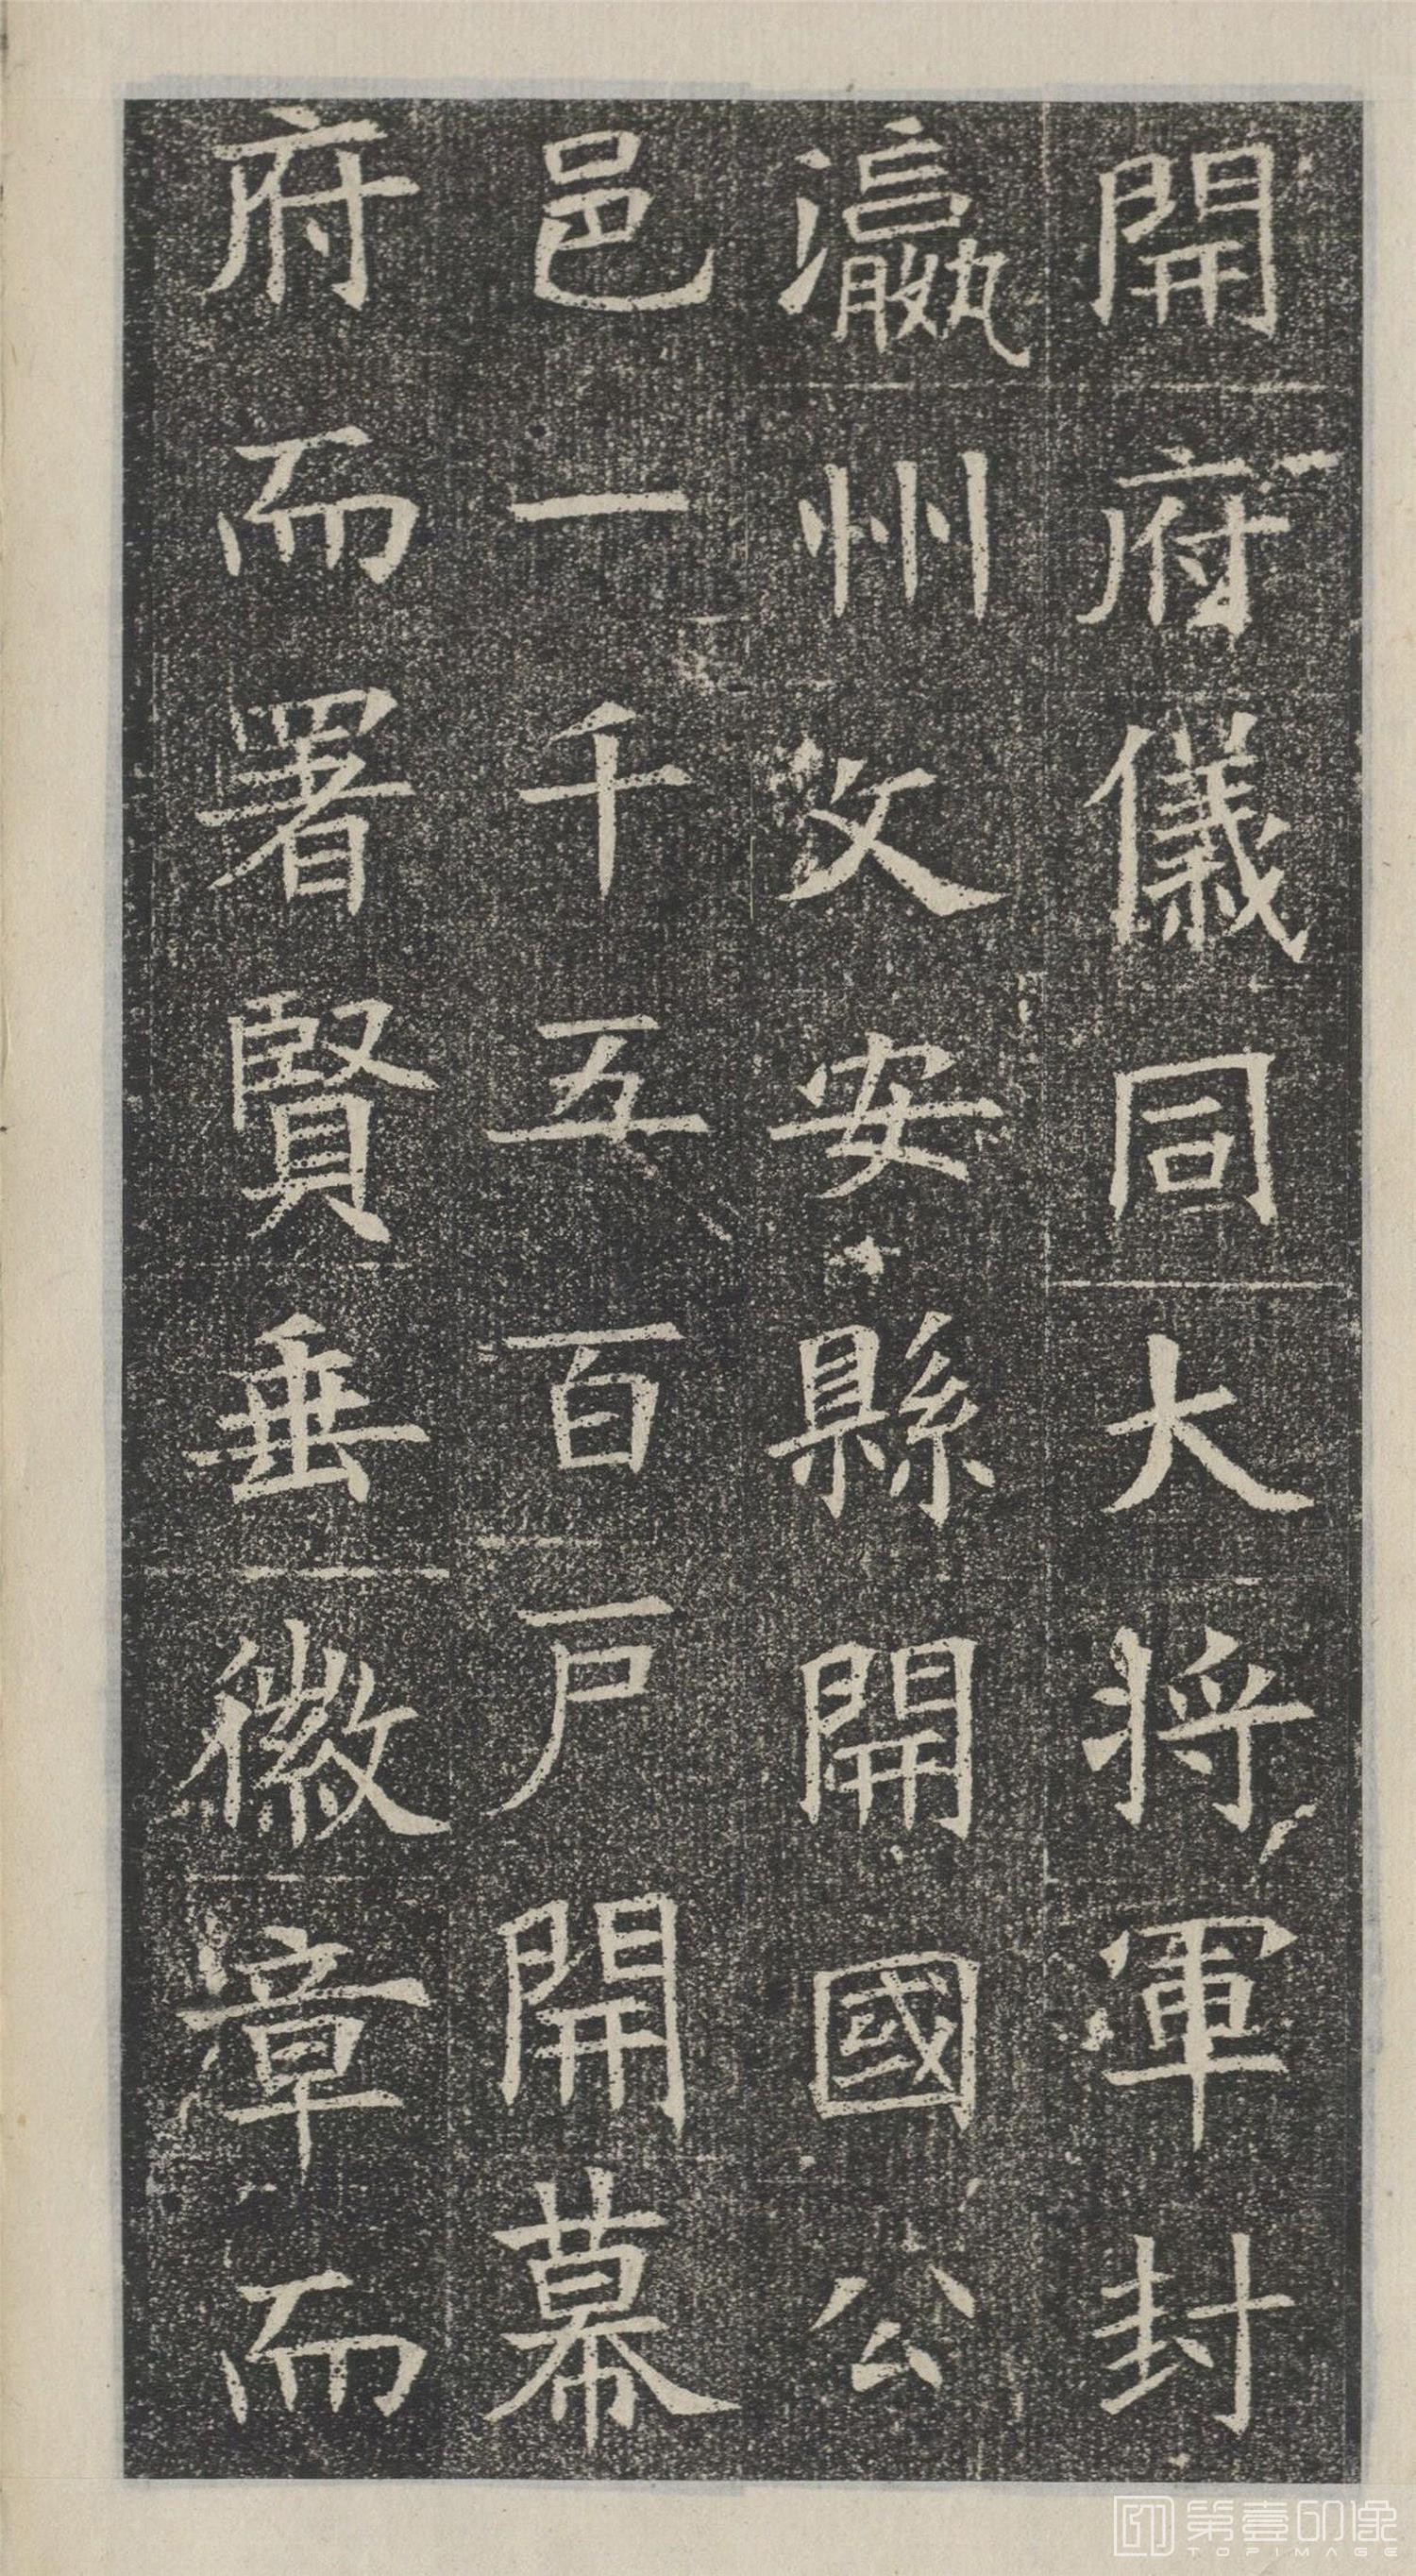 開府儀同大將軍封
瀛州文安縣開國公
邑一千五百戶開幕
府而署賢垂徽章而
第壹印像
TOPIMAGE